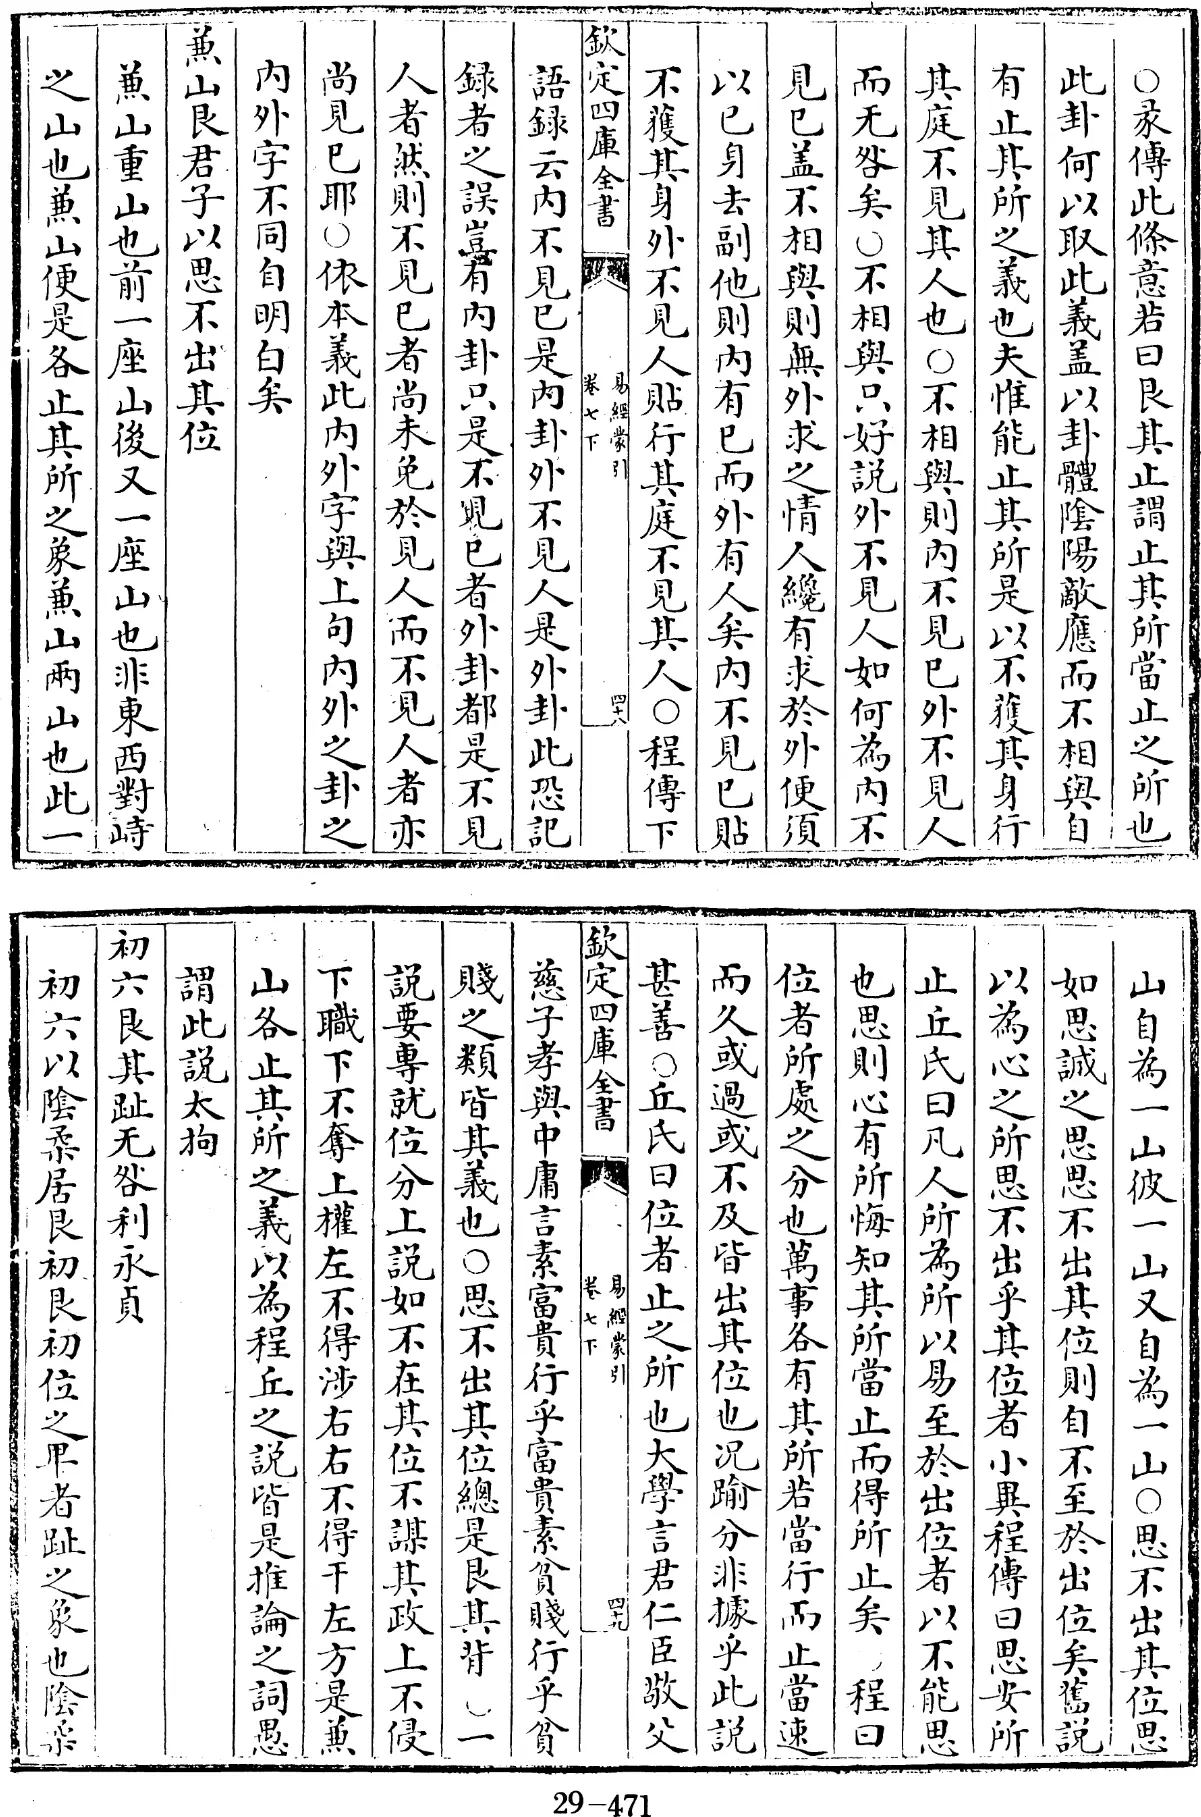 ○彖傳此條意若曰艮其止謂止其所當止之所也
此卦何以取此義盖以卦體陰陽敵應而不相與自
有止其所之義也夫惟能止其所是以不獲其身行
其庭不見其人也○不相與則内不見已外不見人
而无咎矣○不相與只好説外不見人如何為内不
見已盖不相與則無外求之情人纔有求於外便須
以已身去副他則内有已而外有人矣内不見已貼
不獲其身外不見人貼行其庭不見其人○程傳下
欽定四庫全書
易經蒙引
卷七下
四十八
語録云内不見已是内卦外不見人是外卦此恐記
録者之誤豈有内卦只是不見已者外卦都是不見
人者然則不見已者尚未免於見人而不見人者亦
尚見已耶○依本義此内外字與上句内外之卦之
内外字不同自明白矣
兼山艮君子以思不出其位
兼山重山也前一座山後又一座山也非東西對峙
之山也兼山便是各止其所之象兼山兩山也此一
山自為一山彼一山又自為一山○思不出其位思
如思誠之思思不出其位則自不至於出位矣舊説
以為心之所思不出乎其位者小異程傳曰思安所
止丘氏曰凡人所為所以易至於出位者以不能思
也思則心有所悔知其所當止而得所止矣○程曰
位者所處之分也萬事各有其所若當行而止當速
而久或過或不及皆出其位也况踰分非據乎此説
甚善○丘氏曰位者止之所也大學言君仁臣敬父
欽定四庫全書
易經蒙引
卷七下
四十九
慈子孝與中庸言素富貴行乎富貴素貧賤行乎貧
賤之類皆其義也○思不出其位總是艮其背○一
説要專就位分上説如不在其位不謀其政上不侵
下職下不奪上權左不得涉右右不得干左方是兼
山各止其所之義以為程丘之説皆是推論之詞愚
謂此説太拘
初六艮其趾无咎利永貞
初六以陰柔居艮初艮初位之卑者趾之象也陰柔
29-471